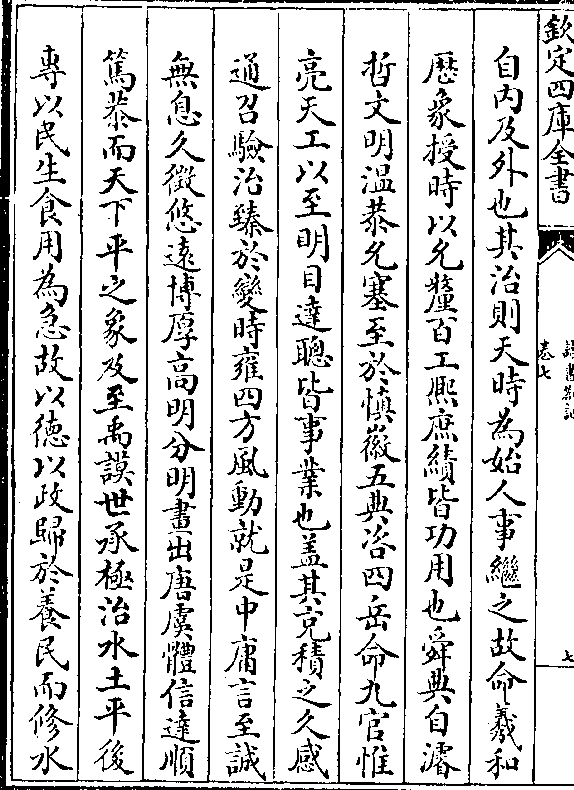 欽定四庫全書
卷七
七
自內及外也其治則天時為始人事繼之故命羲和
歴象授時以允釐百工熈庶績皆功用也舜典自濬
哲文明溫恭允塞至於慎徽五典咨四岳命九官惟
亮天工以至明目達聰皆事業也盖其充積之久感
通召驗治臻於變時雍四方風動就是中庸言至誠
無息久徵悠遠博厚高明分明畫出唐虞體信達順
篤恭而天下平之象及至禹謨世承極治水土平後
専以民生食用為急故以徳以政歸於養民而修水